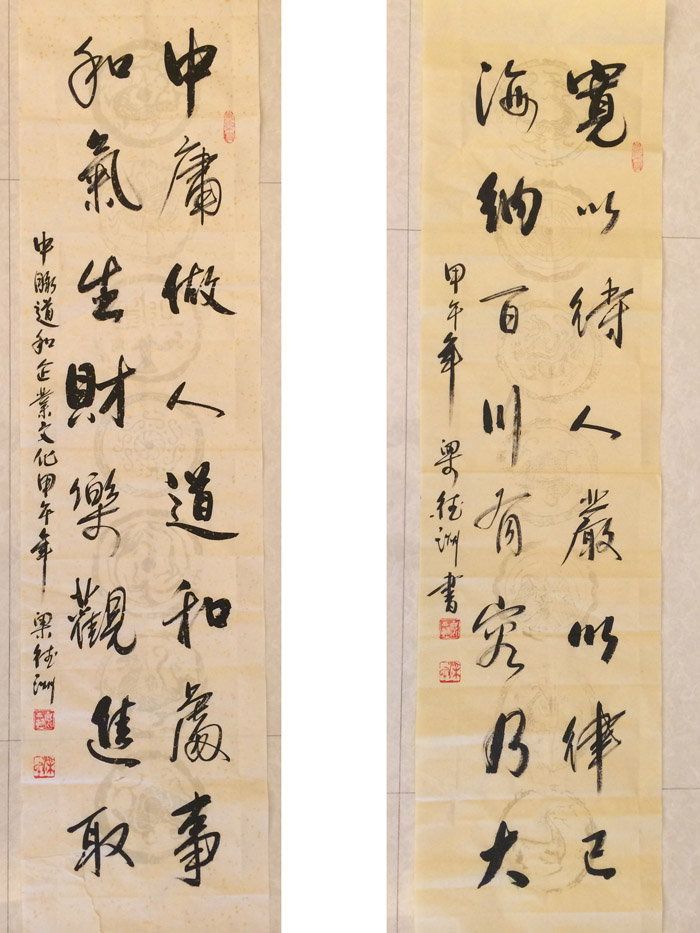 寬以待人嚴以律己
海納百川有容乃大
甲午年 梁德洲書
中庸做人道和處事
和氣生財樂觀進取
中脈道和企業文化甲午年 梁德洲